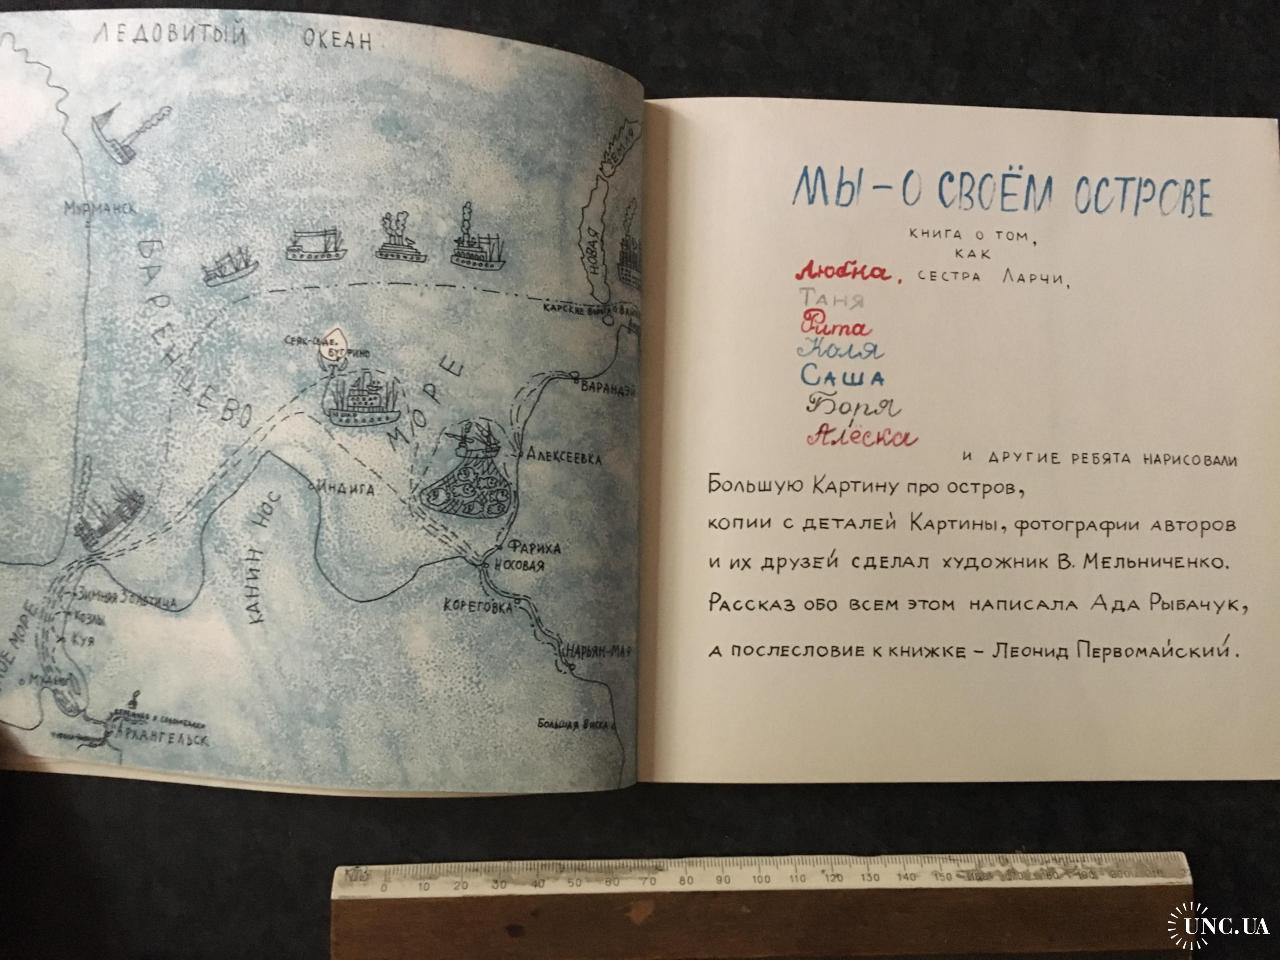 ЛЕДОВИТЫЙ ОКЕАН
МУРМАНСК
БАРЕНЦЕВО МОРЕ
НОВАЯ ЗЕМЛЯ
КАРСКИЕ
БУГРИНО
ВАРАНДЭЙ
АЛЕКСЕЕВКА
ИНДИГА
КАНИН НОС
ФАРИХА
НОСОВАЯ
КОРЕГОВКА
ЗИМНЯЯ ЗОЛОТИЦА
КОЗЛЫ
КУЯ
МОРЕ
НАРЬЯН-МАР
БОЛЬШАЯ ВИСКА
АРХАНГЕЛЬСК
МЫ - О СВОЁМ ОСТРОВЕ
КНИГА О ТОМ,
КАК
Любна, СЕСТРА ЛАРЧИ,
ТАНЯ
Рита
Коля
САША
Боря
Алёска
И ДРУГИЕ РЕБЯТА НАРИСОВАЛИ
БОЛЬШУЮ КАРТИНУ ПРО ОСТРОВ,
КОПИИ С ДЕТАЛЕЙ КАРТИНЫ, ФОТОГРАФИИ АВТОРОВ
И ИХ ДРУЗЕЙ СДЕЛАЛ ХУДОЖНИК В. МЕЛЬНИЧЕНКО.
РАССКАЗ ОБО ВСЕМ ЭТОМ НАПИСАЛА АДА РЫБАЧУК,
А ПОСЛЕСЛОВИЕ К КНИЖКЕ - ЛЕОНИД ПЕРВОМАЙСКИЙ.
0 10 20 30 40 50 60 70 80 90 100 110 120 130 140 150
UNC.UA